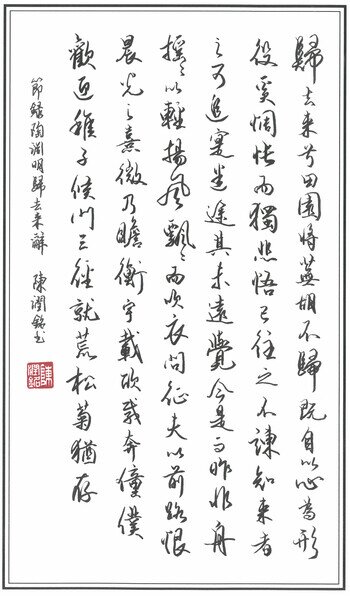 歸去来兮田園將蕪胡不歸既自以心為形
役奚惆悵而獨悲悟已往之不諫知来者
之可追寔迷途其未遠覺今是而昨非舟
摇々以輕揚風飄々而吹衣問征夫以前路恨
晨光之熹微乃瞻衡宇載欣載奔僮僕
歡迎稚子候門三徑就荒松菊猶存
節錄陶淵明歸去来辭 陳潤銘书
陳潤銘